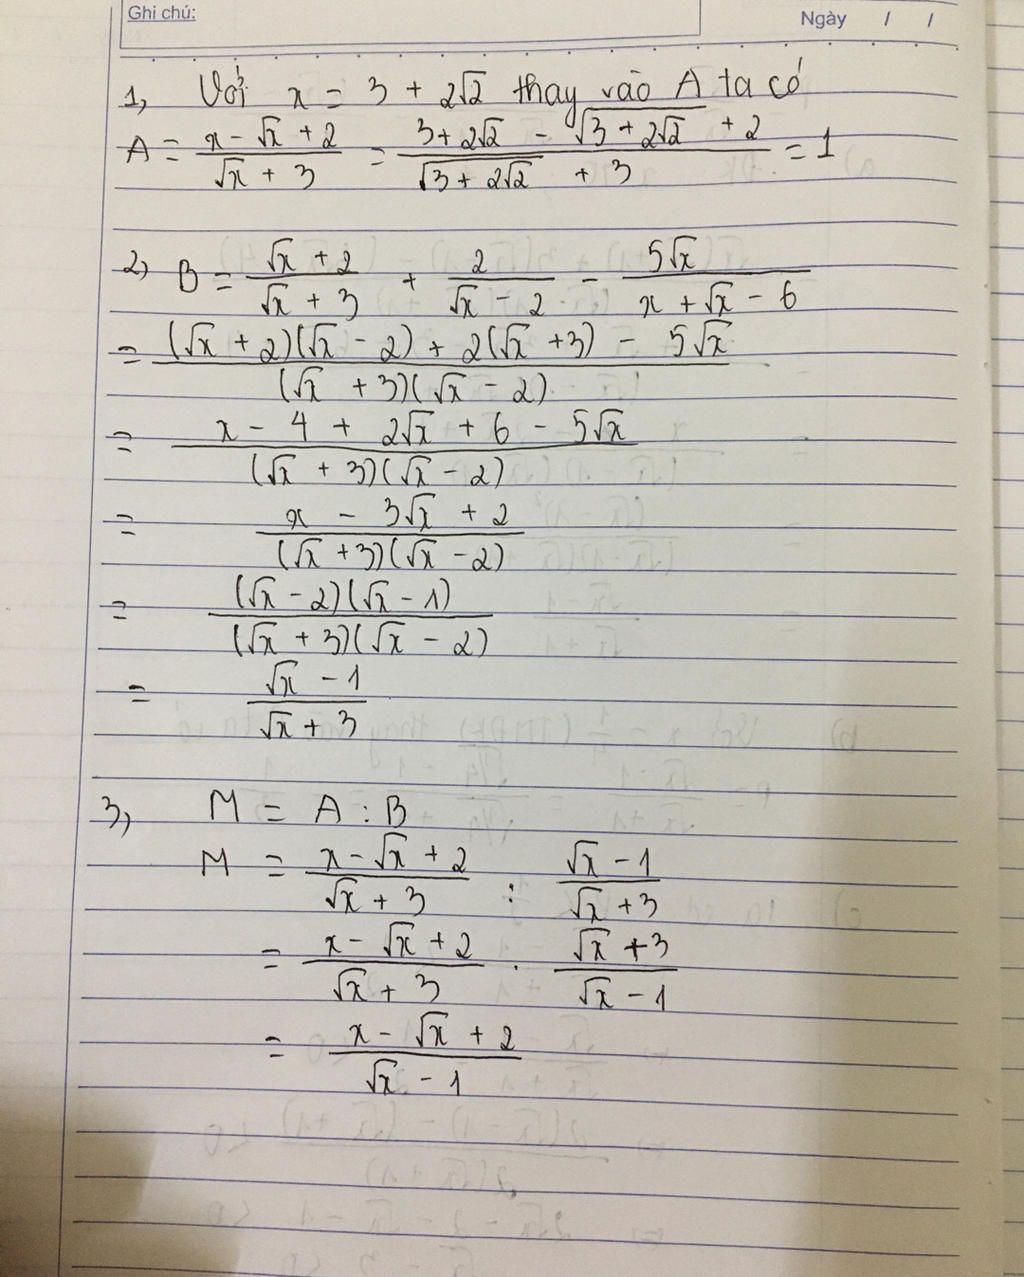 Ghi chú:
Ngày / /
1, Với x = 3 + 2√2 thay vào A ta có
A = (x - √x + 2)/(√x + 3) = (3 + 2√2 - √(3 + 2√2) + 2)/(√(3 + 2√2) + 3) = 1
2, B = (√x + 2)/(√x + 3) + 2/(√x - 2) - 5√x/(x + √x - 6)
= ((√x + 2)(√x - 2) + 2(√x + 3) - 5√x)/((√x + 3)(√x - 2))
= (x - 4 + 2√x + 6 - 5√x)/((√x + 3)(√x - 2))
= (x - 3√x + 2)/((√x + 3)(√x - 2))
= ((√x - 2)(√x - 1))/((√x + 3)(√x - 2))
= (√x - 1)/(√x + 3)
3, M = A : B
M = (x - √x + 2)/(√x + 3) : (√x - 1)/(√x + 3)
= (x - √x + 2)/(√x + 3) . (√x + 3)/(√x - 1)
= (x - √x + 2)/(√x - 1)